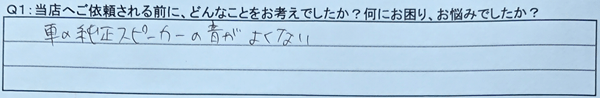 Q1：当店へご依頼される前に、どんなことをお考えでしたか？何にお困り、お悩みでしたか？
車の純正スピーカーの音がよくない